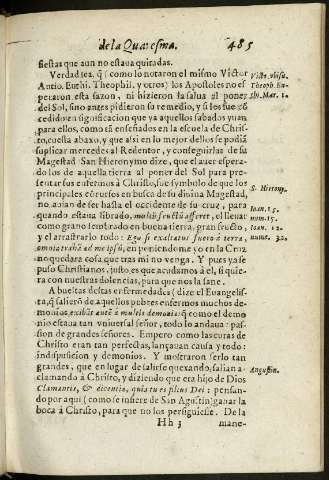 de la Quaresma. 485
fiestas que aun no estaua quitadas.
Verdad sea, q̃ (como lo notaron el mismo Victor
Antio. Euthi. Theophil. y otros) los Apostoles no es
peraron esta sazon, ni hizieron la salua al poner
del Sol, sino antes pidieron su remedio, y si les fue cõ
cedido en significacion que ya aquellos sabados yuan
para ellos, como tã enseñados en la escuela de Chris-
to, cuesta abaxo, y que assi en lo mejor dellos se podiã
suplicar mercedes al Redentor, y conseguirlas de su
Magestad. San Hieronymo dize, que el auer espera-
do los de aquella tierra al poner del Sol para pre-
sentar sus enfermos à Christo, fue symbolo de que los
principales cõcursos en busca de su diuina Magestad,
no auian de ser hasta el occidente de su cruz, para
quando estaua librado, multũ fructũ afferet, el lleuar
como grano sembrado en buena tierra, gran fructo,
y el arrastrarlo todo: Ego si exaltatus fuero à terra,
omnia trahã ad me ipsũ, en poniendome yo en la Cruz
no quedara cosa que tras mi no venga. Y pues ya se
puso Christianos, justo es que acudamos à el, si quie-
ra con nuestras dolencias, para que nos la sane.
A bueltas destas enfermedades (dize el Euangelis-
ta, q̃ salierõ de aquellos pobres enfermos muchos de-
monios, exibãt autẽ à multis demonia: q̃ como el demo
nio estaua tan vniuersal señor, todo lo andaua: pas-
sion de grandes señores. Empero como las curas de
Christo eran tan perfectas, lançauan causa y todo:
indispusicion y demonios. Y mostraron serlo tan
grandes, que en lugar de salirse quexando, salian a-
clamando à Christo, y diziendo que era hijo de Dios
Clamantia, & dicentia, quia tu es filius Dei: pensan-
do por aqui (como se infiere de San Agustin) ganar la
boca à Christo, para que no los persiguiesse. De la
Hh 3 mane-
Victo. vbi su.
Theoph. Eu-
thi. Mar. 1.
S. Hierony.
Ioan. 15.
num. 15.
Ioan. 12.
nume. 32.
Augustin.